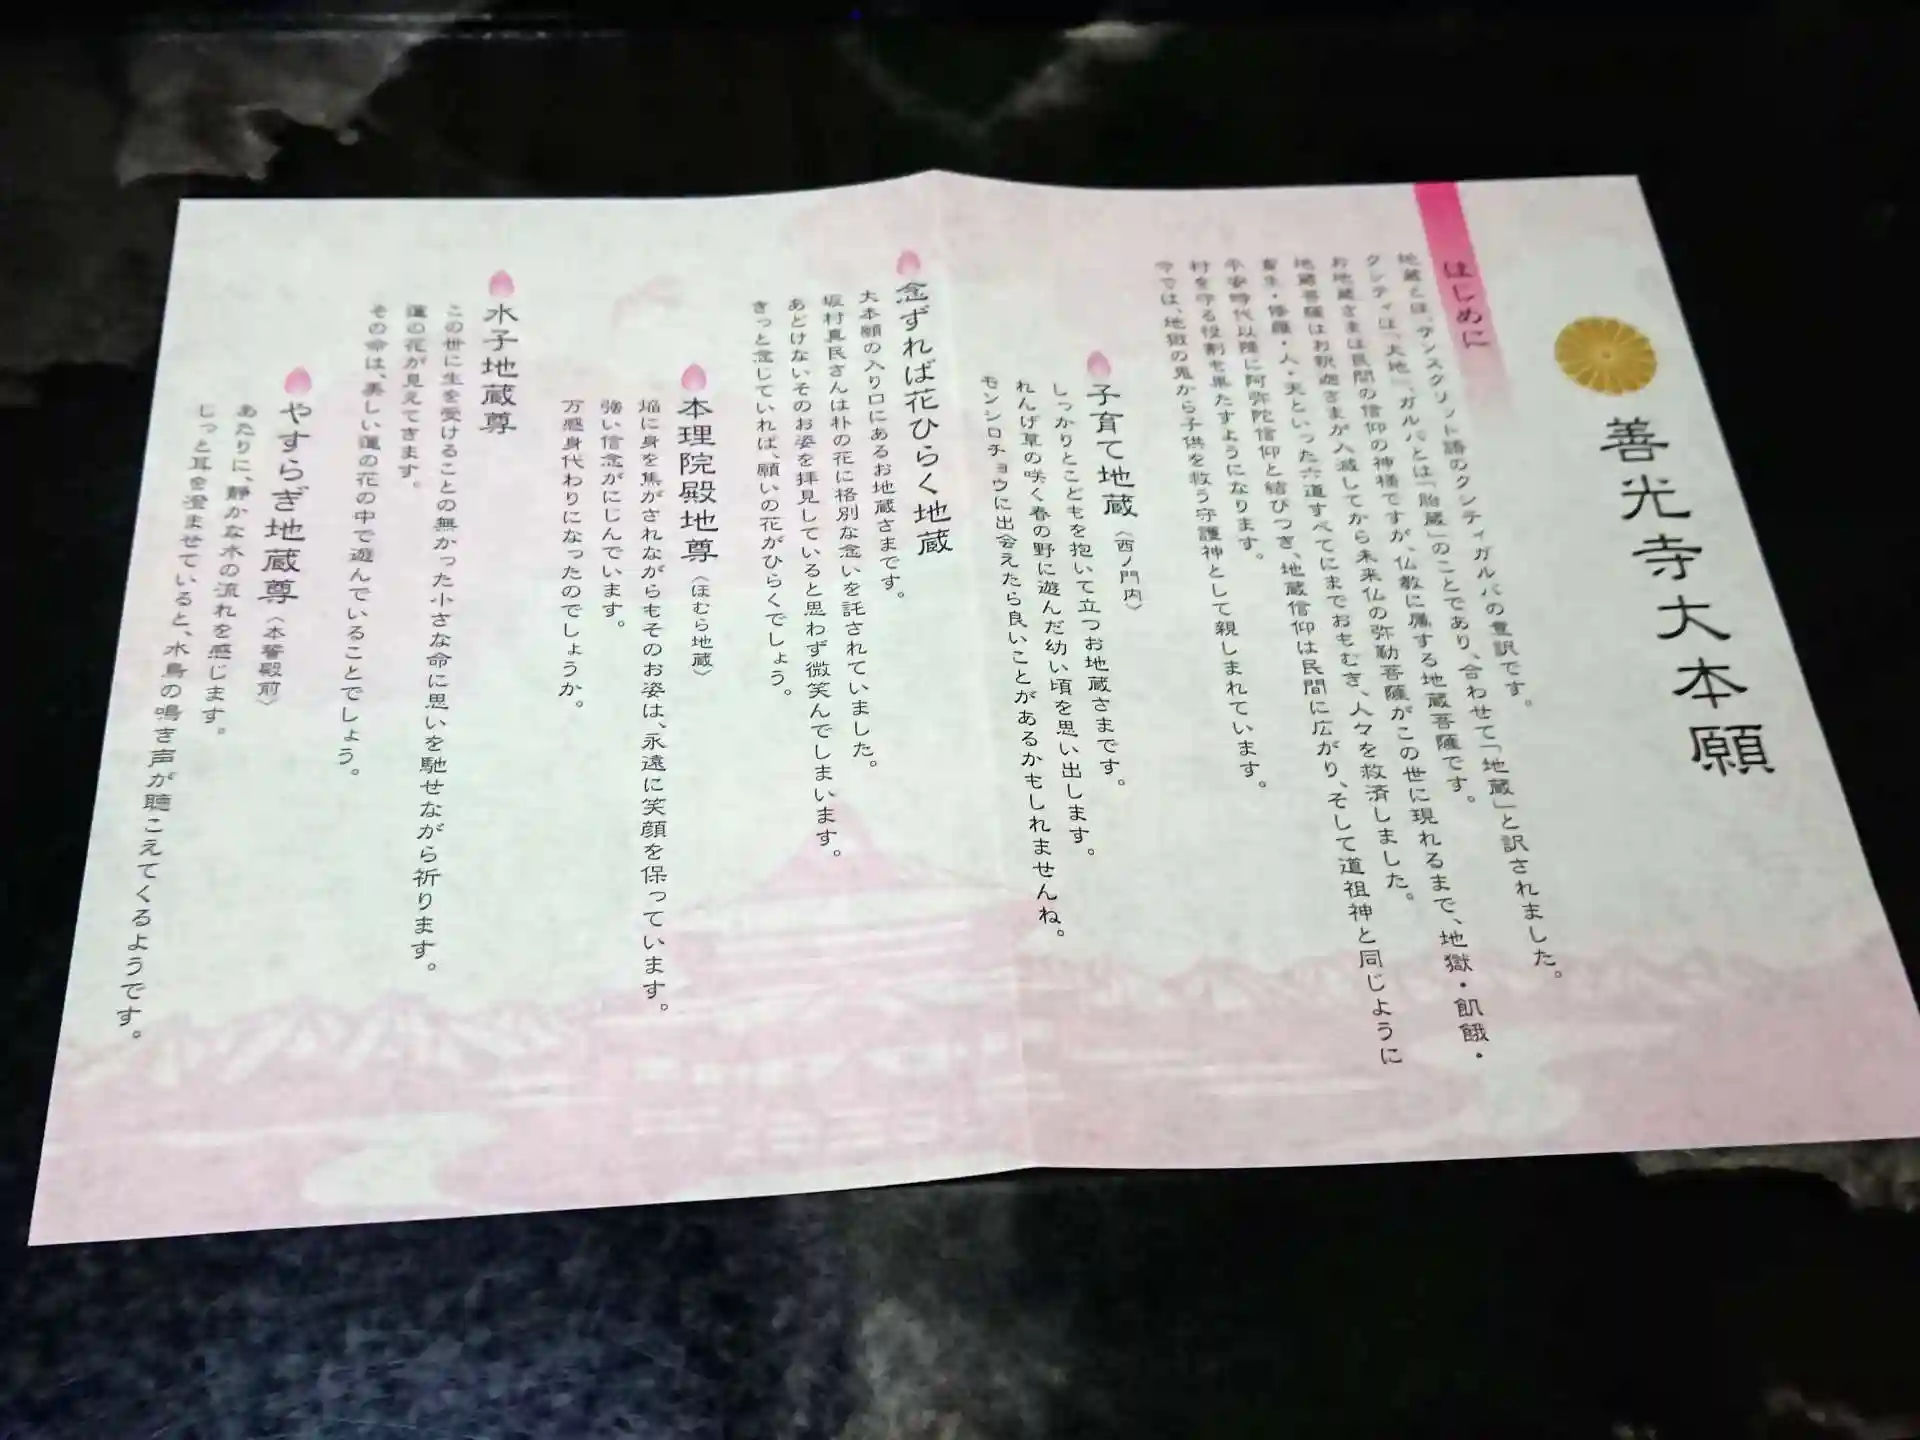 善光寺大本願
はじめに
地蔵とは、サンスクリット語のクシティガルバの意訳です。
クシティは、「大地」、ガルバとは「胎蔵」のことであり、合わせて「地蔵」と訳されました。
お地蔵さまは民間の信仰の神様ですが、仏教に属する地蔵菩薩です。
地蔵菩薩はお釈迦さまが入滅してから未来仏の弥勒菩薩がこの世に現れるまで、地獄・飢餓・
畜生・修羅・人・天といった六道すべてにまでおもむき、人々を救済しました。
平安時代以降に阿弥陀信仰と結びつき、地蔵信仰は民間に広がり、そして道祖神と同じように
村を守る役割を果たすようになります。
今では、地獄の鬼から子供を救う守護神として親しまれています。
子育て地蔵〈西ノ門内〉
しっかりとこどもを抱いて立つお地蔵さまです。
れんげ草の咲く春の野に遊んだ幼い頃を思い出します。
モンシロチョウに出会えたら良いことがあるかもしれませんね。
念ずれば花ひらく地蔵
大本願の入り口にあるお地蔵さまです。
坂村真民さんは朴の花に格別な念いを託されていました。
あどけないそのお姿を拝見していると思わず微笑んでしまいます。
きっと念じていれば、願いの花がひらくでしょう。
本理院殿地尊〈ほむら地蔵〉
焔に身を焦がされながらもそのお姿は、永遠に笑顔を保っています。
強い信念がにじんでいます。
万感身代わりになったのでしょうか。
水子地蔵尊
この世に生を受けることの無かった小さな命に思いを馳せながら祈ります。
蓮の花が見えてきます。
その命は、美しい蓮の花の中で遊んでいることでしょう。
やすらぎ地蔵尊〈本誓殿前〉
あたりに、静かな水の流れを感じます。
じっと耳を澄ませていると、水鳥の鳴き声が聴こえてくるようです。